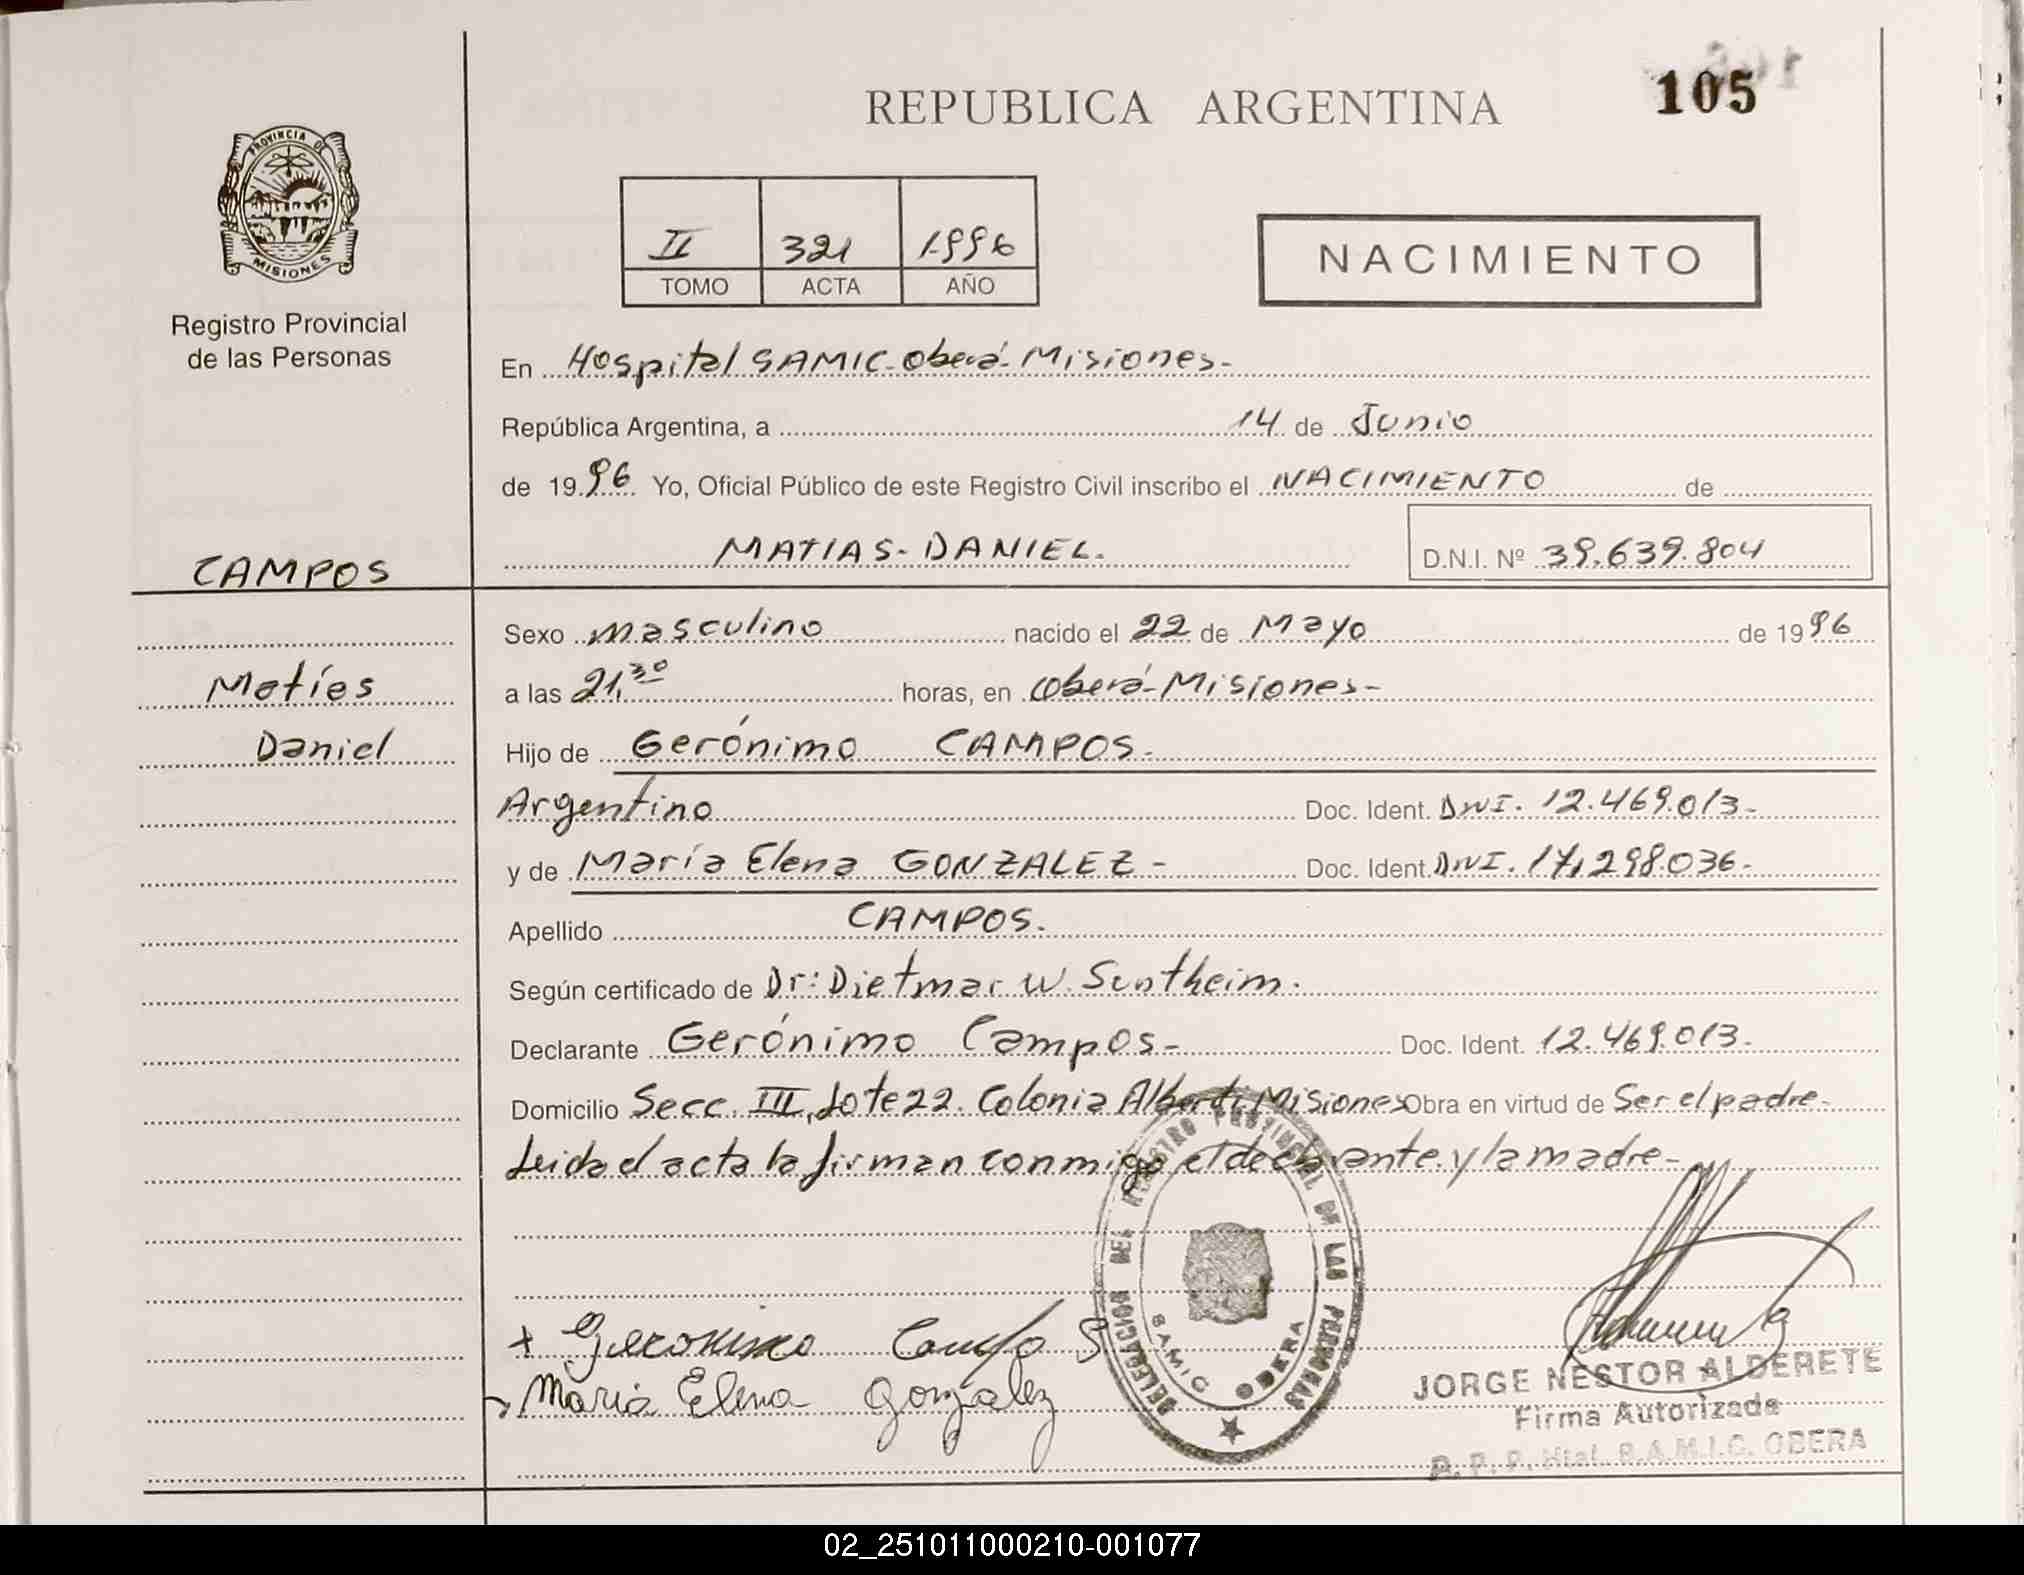 REPUBLICA ARGENTINA
105
PROVINCIA DE
MISIONES
Registro Provincial
de las Personas
II 321 1996
TOMO ACTA AÑO
NACIMIENTO
En Hospital SAMIC-Oberá-Misiones-
República Argentina, a 14 de Junio
de 1996 Yo, Oficial Público de este Registro Civil inscribo el NACIMIENTO de
MATIAS-DANIEL. D.N.I. Nº 39.639.804
CAMPOS
Matías
Daniel
Sexo masculino nacido el 22 de Mayo de 1996
a las 21,30 horas, en Oberá-Misiones-
Hijo de Gerónimo CAMPOS-
Argentino Doc. Ident. DNI. 12.469.013-
y de María Elena GONZALEZ- Doc. Ident. DNI. 17,298.036-
Apellido CAMPOS.
Según certificado de Dr: Dietmar W. Suntheim.
Declarante Gerónimo Campos- Doc. Ident. 12.469.013-
Domicilio Secc. III, Lote 22. Colonia Alberdi, Misiones Obra en virtud de Ser el padre-
Leida el acta la firman conmigo el declarante y la madre-
DELEGACION DEL REGISTRO PROVINCIAL DE LAS PERSONAS
SAMIC OBERA
+ Geronimo Campos
Maria Elena Gonzalez
JORGE NESTOR ALDERETE
Firma Autorizada
R. P. P. Htal. S.A.M.I.C. OBERA
02_251011000210-001077